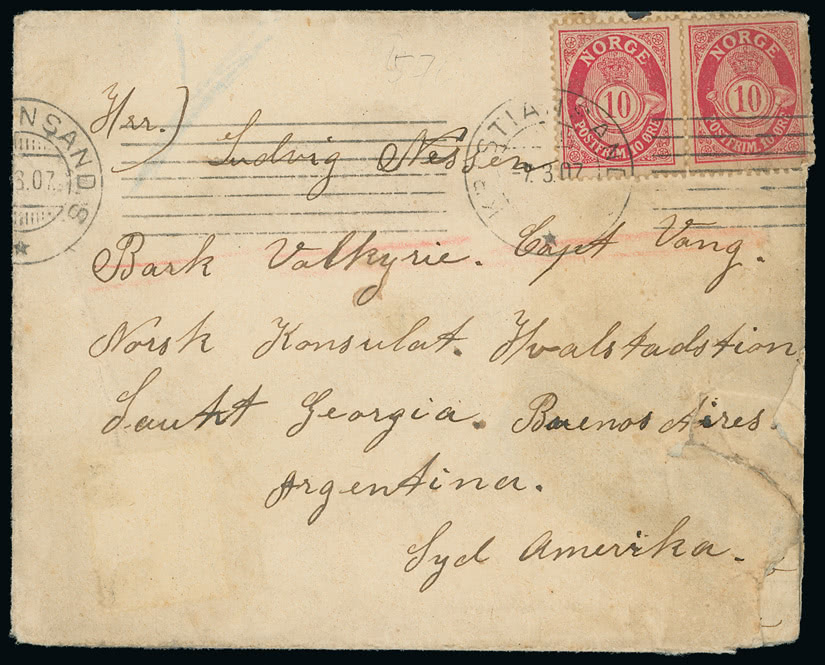 57
NORGE NORGE
10 10
POSTFRIM. 10 ØRE POSTFRIM. 10 ØRE
NSANDS
3.07
KRISTIANSAND
3.07
Herr.) Ludvig Nessen
Bark Valkyrie. Capt Vang.
Norsk Konsulat. Hvalstadstion
Sankt Georgia. Buenos Aires.
Argentina.
Syd Amerika.